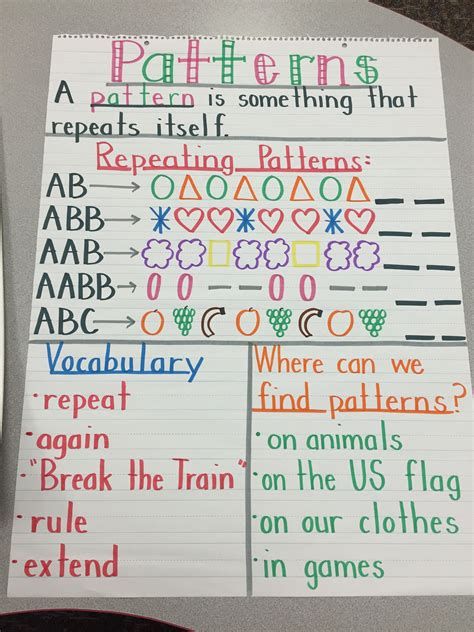 Patterns
A pattern is something that
repeats itself.
Repeating Patterns:
AB
ABB
AAB
AABB
ABC
Vocabulary
• repeat
• again
• "Break the Train"
• rule
• extend
Where can we
find patterns?
• on animals
• on the US flag
• on our clothes
• in games